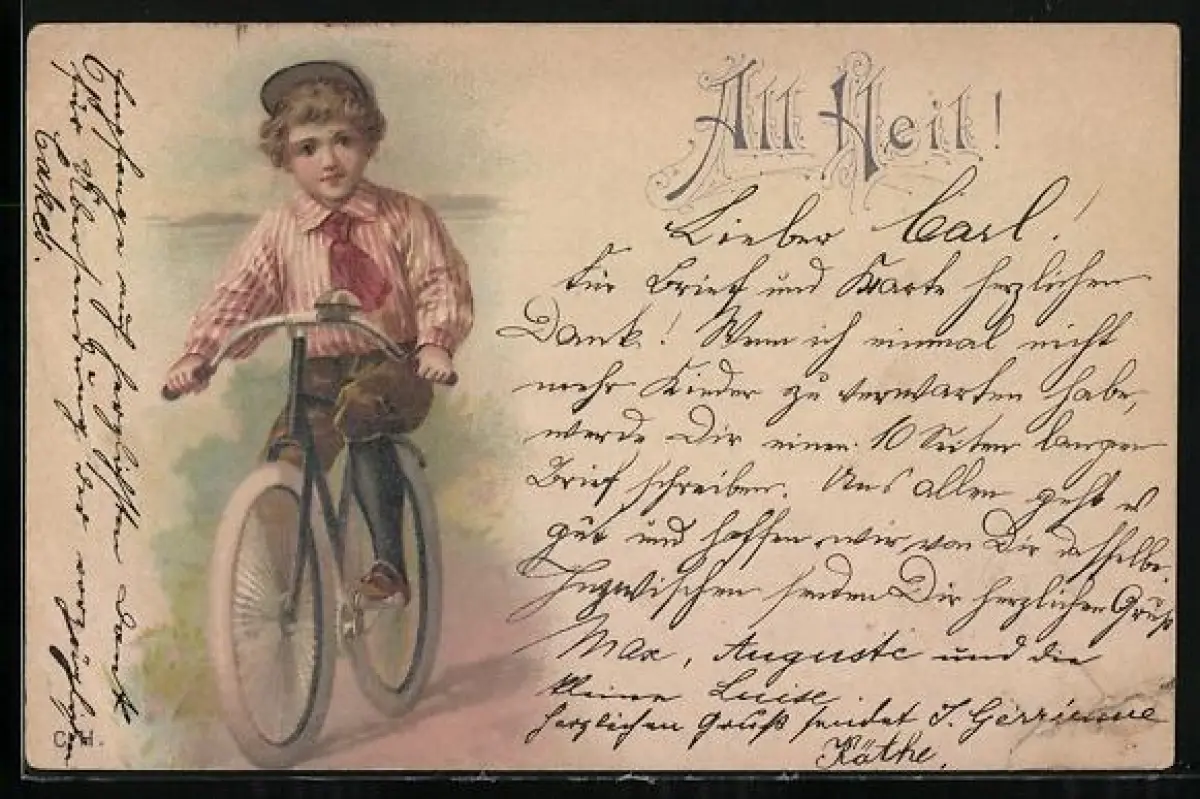 All Heil!
Lieber Carl!
Für Brief und Karte herzlichen
Dank! Wenn ich einmal nicht
mehr Kinder zu verwarten habe,
werde Dir einen 10 Seiten langen
Brief schreiben. Uns allen geht es
gut und hoffen wir von Dir dasselbe.
Inzwischen senden Dir herzlichen Gruß
Max, Auguste und die
kleine Luise.
herzlichen Gruß sendet
Käthe.
Empfange auch herzlichsten Dank
für Übersendung der
Cakes.
C. H.